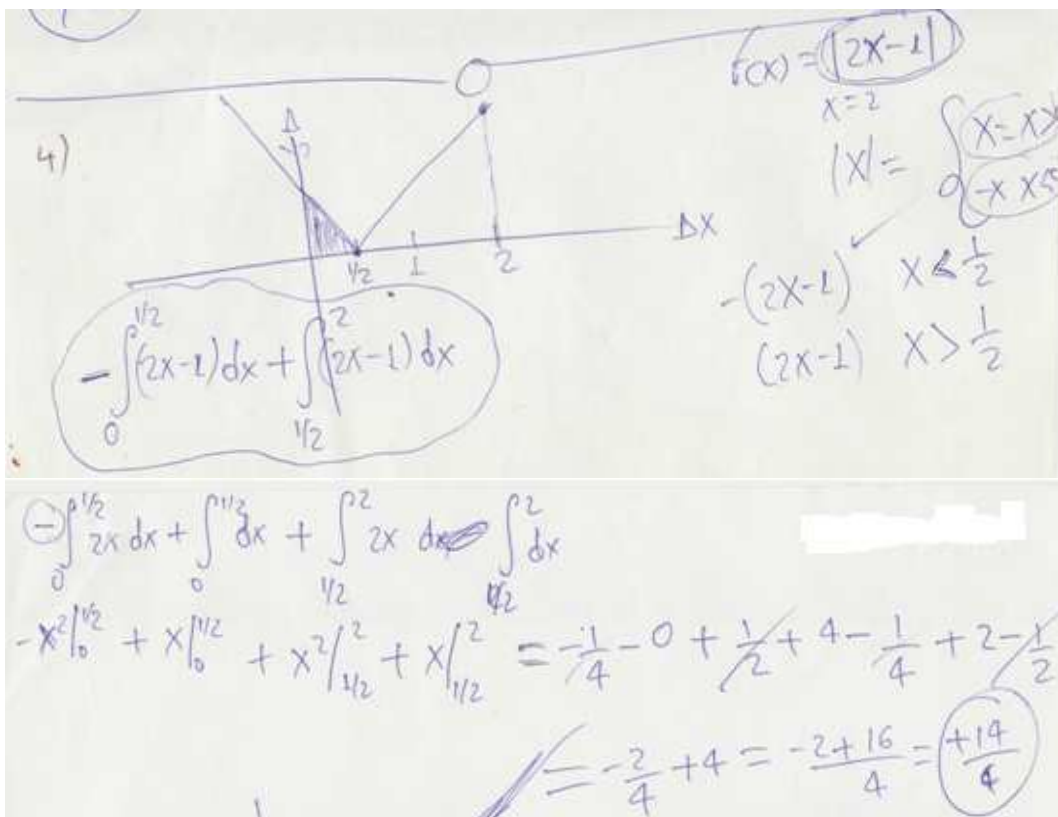 f(x) = |2x-1|
x=2
4)
y
|x| = { x = x>
0 -x x≤0
Δx
1/2 1 2
-(2x-1) x < 1/2
(2x-1) x > 1/2
- ∫_0^{1/2} (2x-1) dx + ∫_{1/2}^2 (2x-1) dx
- ∫_0^{1/2} 2x dx + ∫_0^{1/2} dx + ∫_{1/2}^2 2x dx ∫_{1/2}^2 dx
-x²|_0^{1/2} + x|_0^{1/2} + x²|_{1/2}^2 + x|_{1/2}^2 = -1/4 - 0 + 1/2 + 4 - 1/4 + 2 - 1/2
= -2/4 + 4 = (-2+16)/4 = +14/4